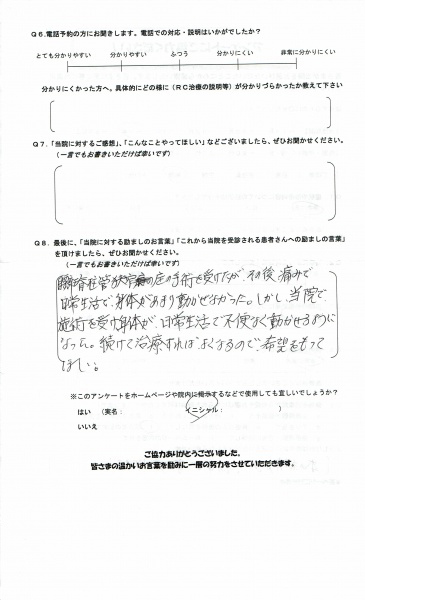 Q6.電話予約の方にお聞きします。電話での対応・説明はいかがでしたか？
とても分かりやすい　分かりやすい　ふつう　分かりにくい　非常に分かりにくい
分かりにくかった方へ。具体的にどの様に（RC治療の説明等）が分かりづらかったか教えて下さい
Q7.「当院に対するご感想」、「こんなことやってほしい」などございましたら、ぜひお聞かせください。
（一言でもお書きいただけば幸いです）
Q8. 最後に、「当院に対する励ましのお言葉」「これから当院を受診される患者さんへの励ましの言葉」
を頂けましたら、ぜひお聞かせください。
（一言でもお書きいただけば幸いです）
脊柱管狭窄症の手術を受けたが、その後、痛みで
日常生活で、身体があまり動かせなかった。しかし、当院で
施術を受け身体が、日常生活で不便なく動かせるように
なった。続けて治療すればよくなるので、希望をもって
ほしい。
※このアンケートをホームページや院内に掲示するなどで使用しても宜しいでしょうか？
はい　（実名：　イニシャル：　）
いいえ
ご協力ありがとうございました。
皆さまの温かいお言葉を励みに一層の努力をさせていただきます。